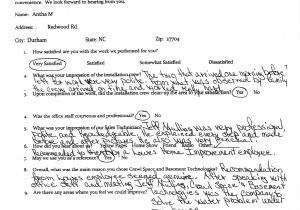 convenience. We look forward to hearing from you.
Name: Aretha M
Address : Redwood Rd.
City: Durham State: NC Zip: 27704
1. How satisfied are you with the work we performed for you?
Very Satisfied Satisfied Dissatisfied
2. What was your impression of the installation crew? The two that arrived one morning before
left for work was very polite. Upon observation by family
the crew arrived on time and worked really hard
3. Upon completion of the work, did the installation crew clean-up the area to your satisfaction?
Yes No
4. Was the office staff courteous and professional? Yes No
5. What was your impression of our Sales Technician? Jeff Mullins was very professional
Polite and knowledgeable. He explained every step and made
6. Recommended to therefore a Lowes Home Improvement employee.
7. May we use you as a reference? Yes No
8. Overall, what was the main reason you chose Crawl Space and Basement Technologies? Recommendation
from Lowes employee seemed genuine. After speaking with
office staff and meeting Jeff Mullins, Crawl Space & Basement
9. Are there any areas where you feel we could improve? Technologies was the company to
solve the water problem under